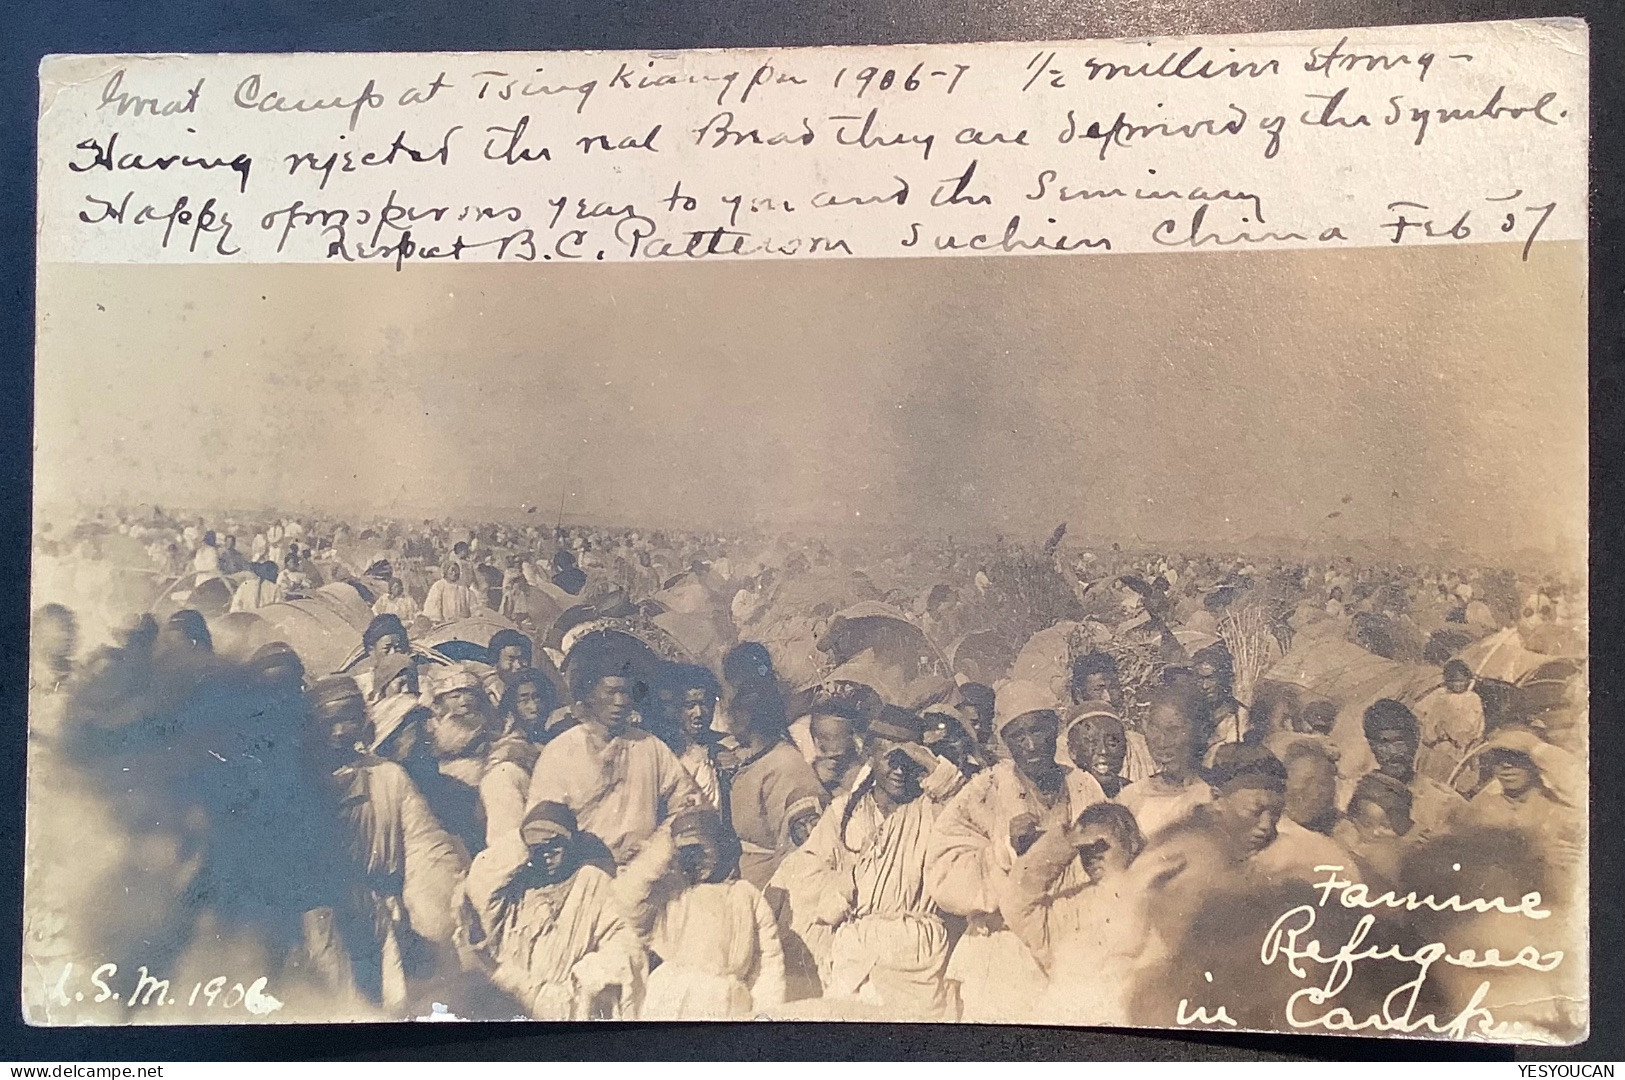 Great Camp at Tsingkiangpu 1906-7 1/2 million strong -
Having rejected the real Bread they are deprived of the Symbol.
Happy & prosperous year to you and the Seminary
Respect B.C. Patterson Suchien China Feb '07
Famine
Refugees
in Camp
L.S.M. 1906
YESYOUCAN